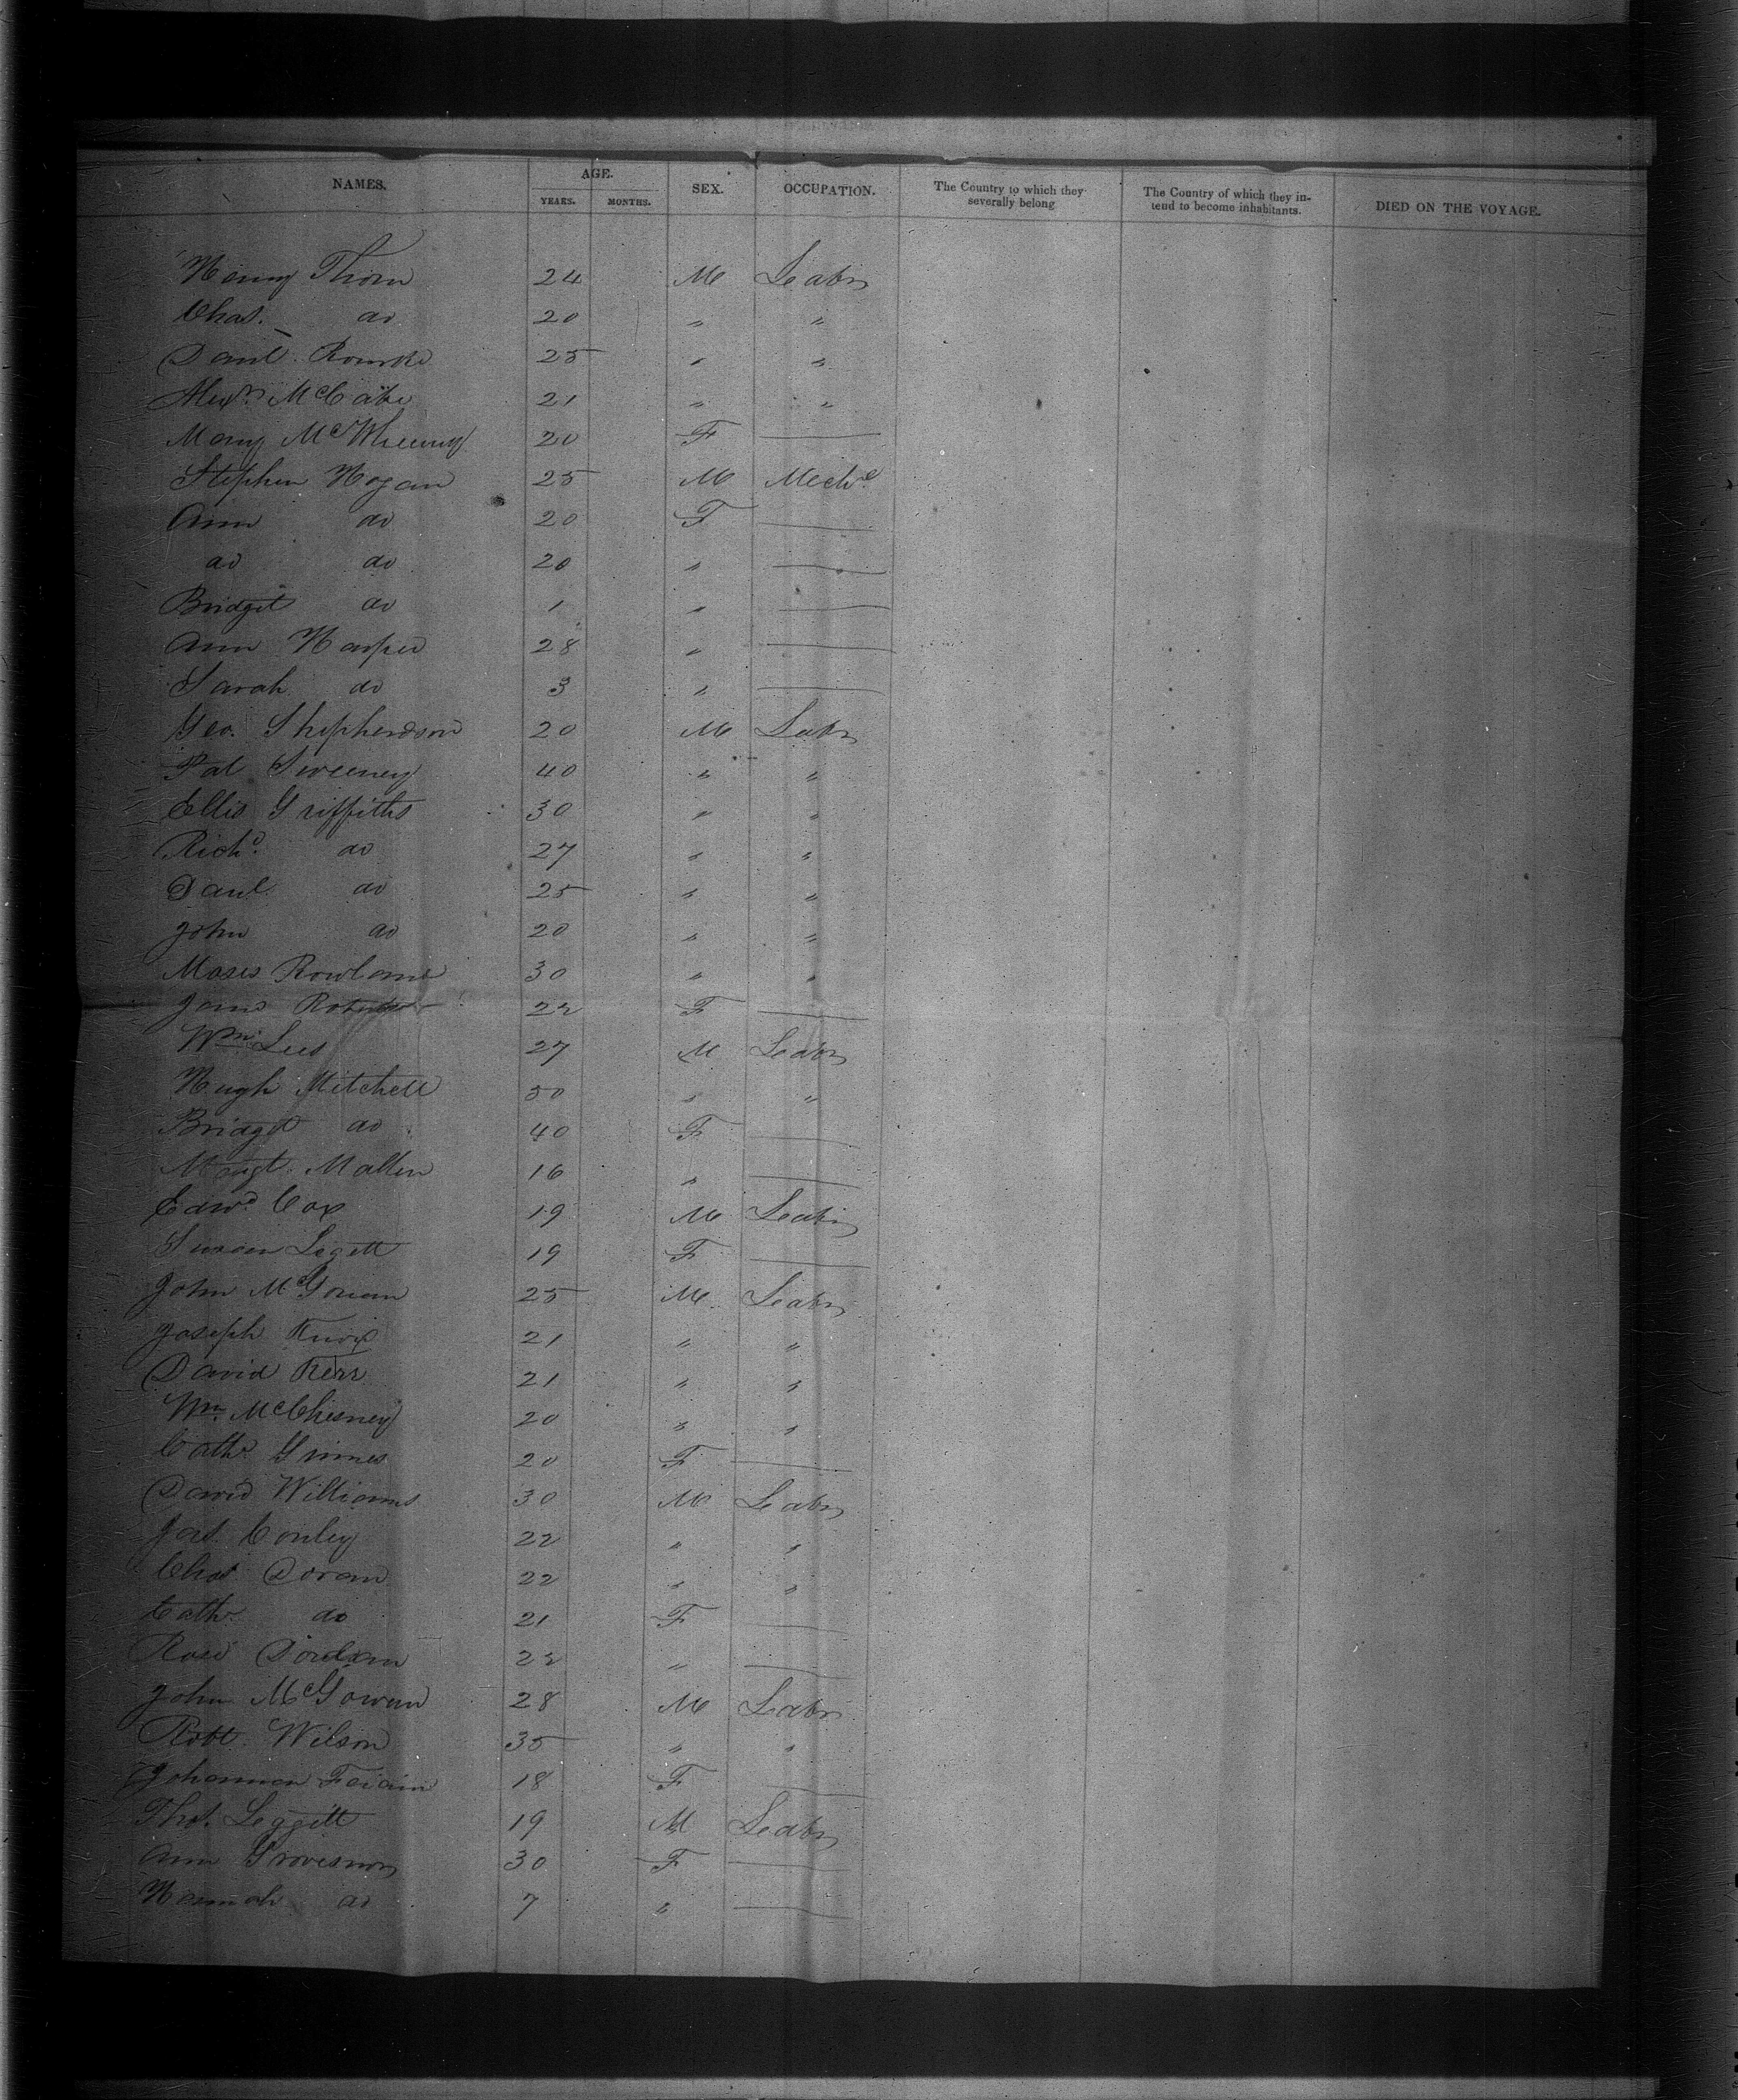 NAMES. AGE. YEARS. MONTHS. SEX. OCCUPATION. The Country to which they severally belong The Country of which they intend to become inhabitants. DIED ON THE VOYAGE.
Henry Thorn 24 M Labr
Chas. do 20 " "
Danl. Rourke 25 " "
Alexr. McCabe 21 " "
Mary 20 F —
Stephen Hogan 25 M Mechc
Ann do 20 F —
do do 20 " —
Bridget do 1 " —
Ann Harper 28 " —
Sarah do 3 " —
Geo. Shepherdson 20 M Labr
Pat Sweeney 40 " "
Ellis Griffiths 30 " "
Richd. do 27 " "
Danl do 25 " "
John do 20 " "
Moses Rowland 30 " "
Jane Roberts 22 F —
Wm. Lees 27 M Labr
Hugh Mitchell 50 " "
Bridget do 40 F —
Margt. Mallen 16 " —
Edwd. Cox 19 M Labr
Susan Legett 19 F —
John 25 M Labr
Joseph Knox 21 " "
David Kerr 21 " "
Wm. McChesney 20 " "
Cathe. Grimes 20 F —
David Williams 30 M Labr
Jas. Conley 22 " "
Chas Doran 22 " "
Cathe. do 21 F —
Rose 22 " —
John McGowan 28 M Labr
Robt. Wilson 35 " "
Johannah 18 F —
Thos. Leggett 19 M Labr
Ann Grovesnor 30 F —
Hannah do 7 " —